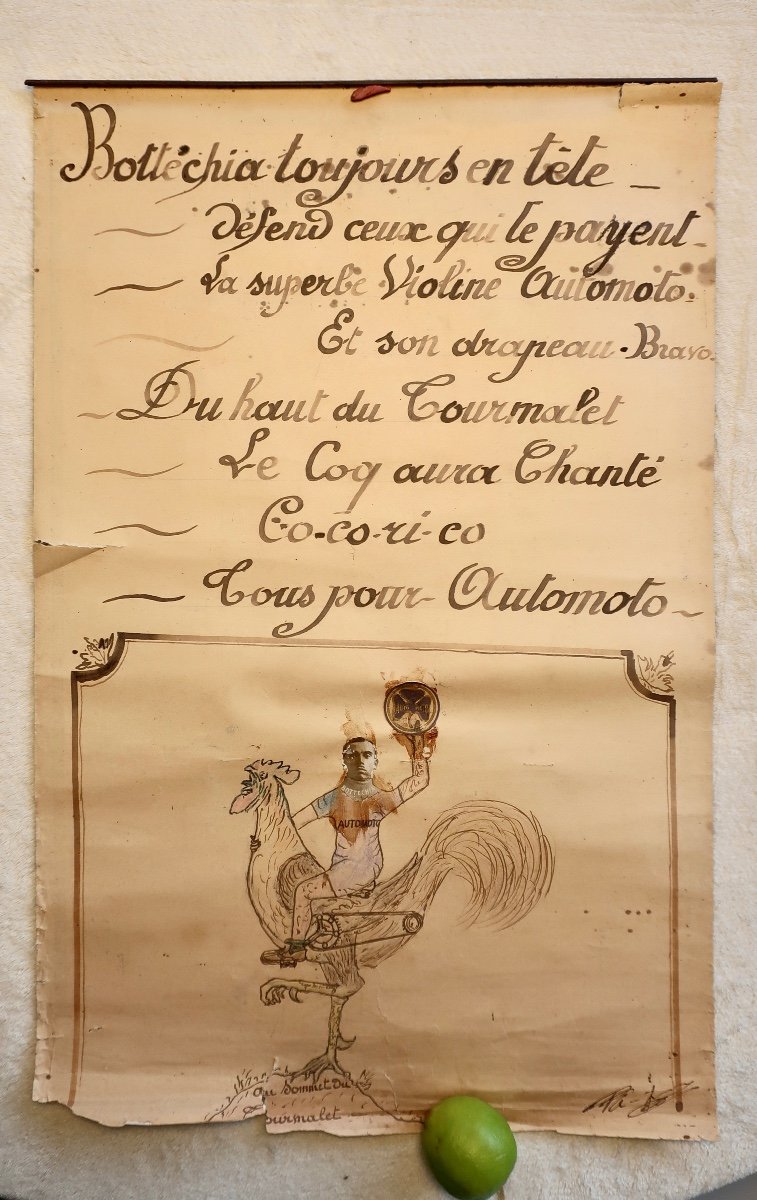 Bottéchia toujours en tête
défend ceux qui le payent
La superbe Violine Automoto.
Et son drapeau. Bravo.
Du haut du Tourmalet
Le Coq aura Chanté
Co-co-ri-co
Tous pour Automoto
BOTTECHIA
AUTOMOTO
au Sommet Du
Tourmalet